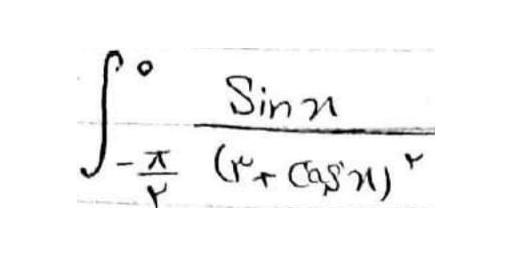 ∫_{-π/۲}^{0} Sin x / (۳ + Cos x)^۲